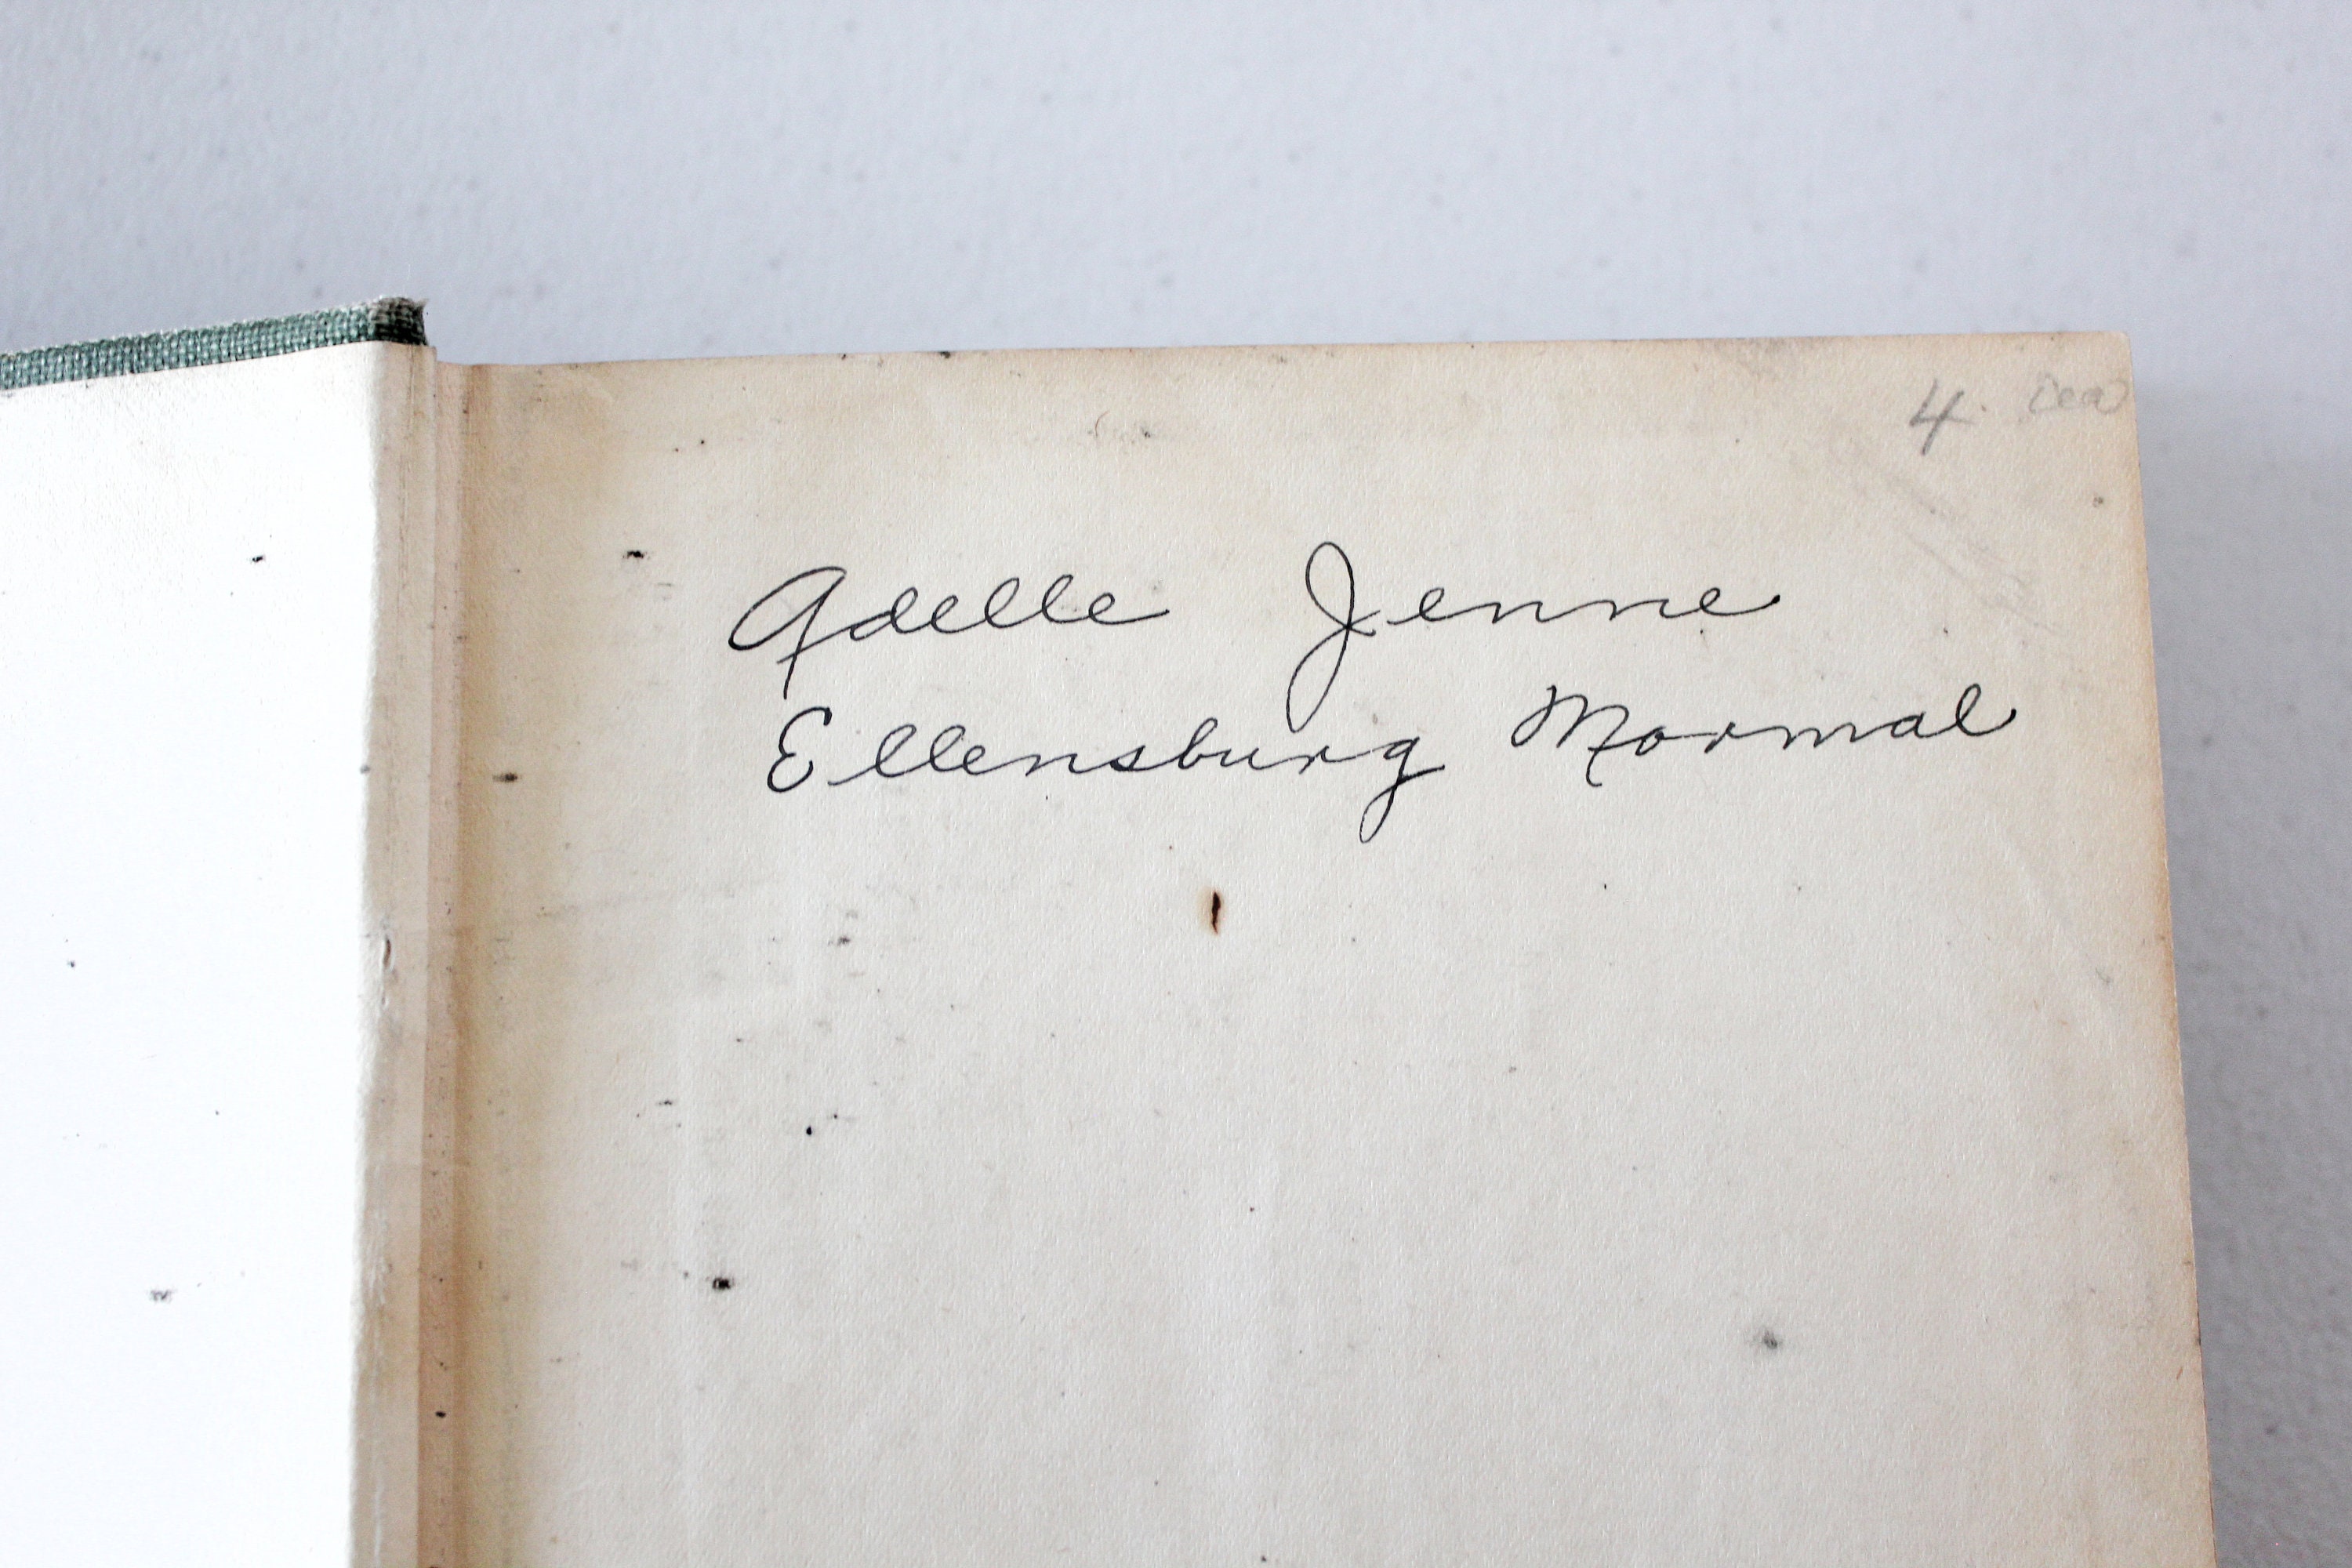 4.
Adelle Jenne
Ellensburg Normal